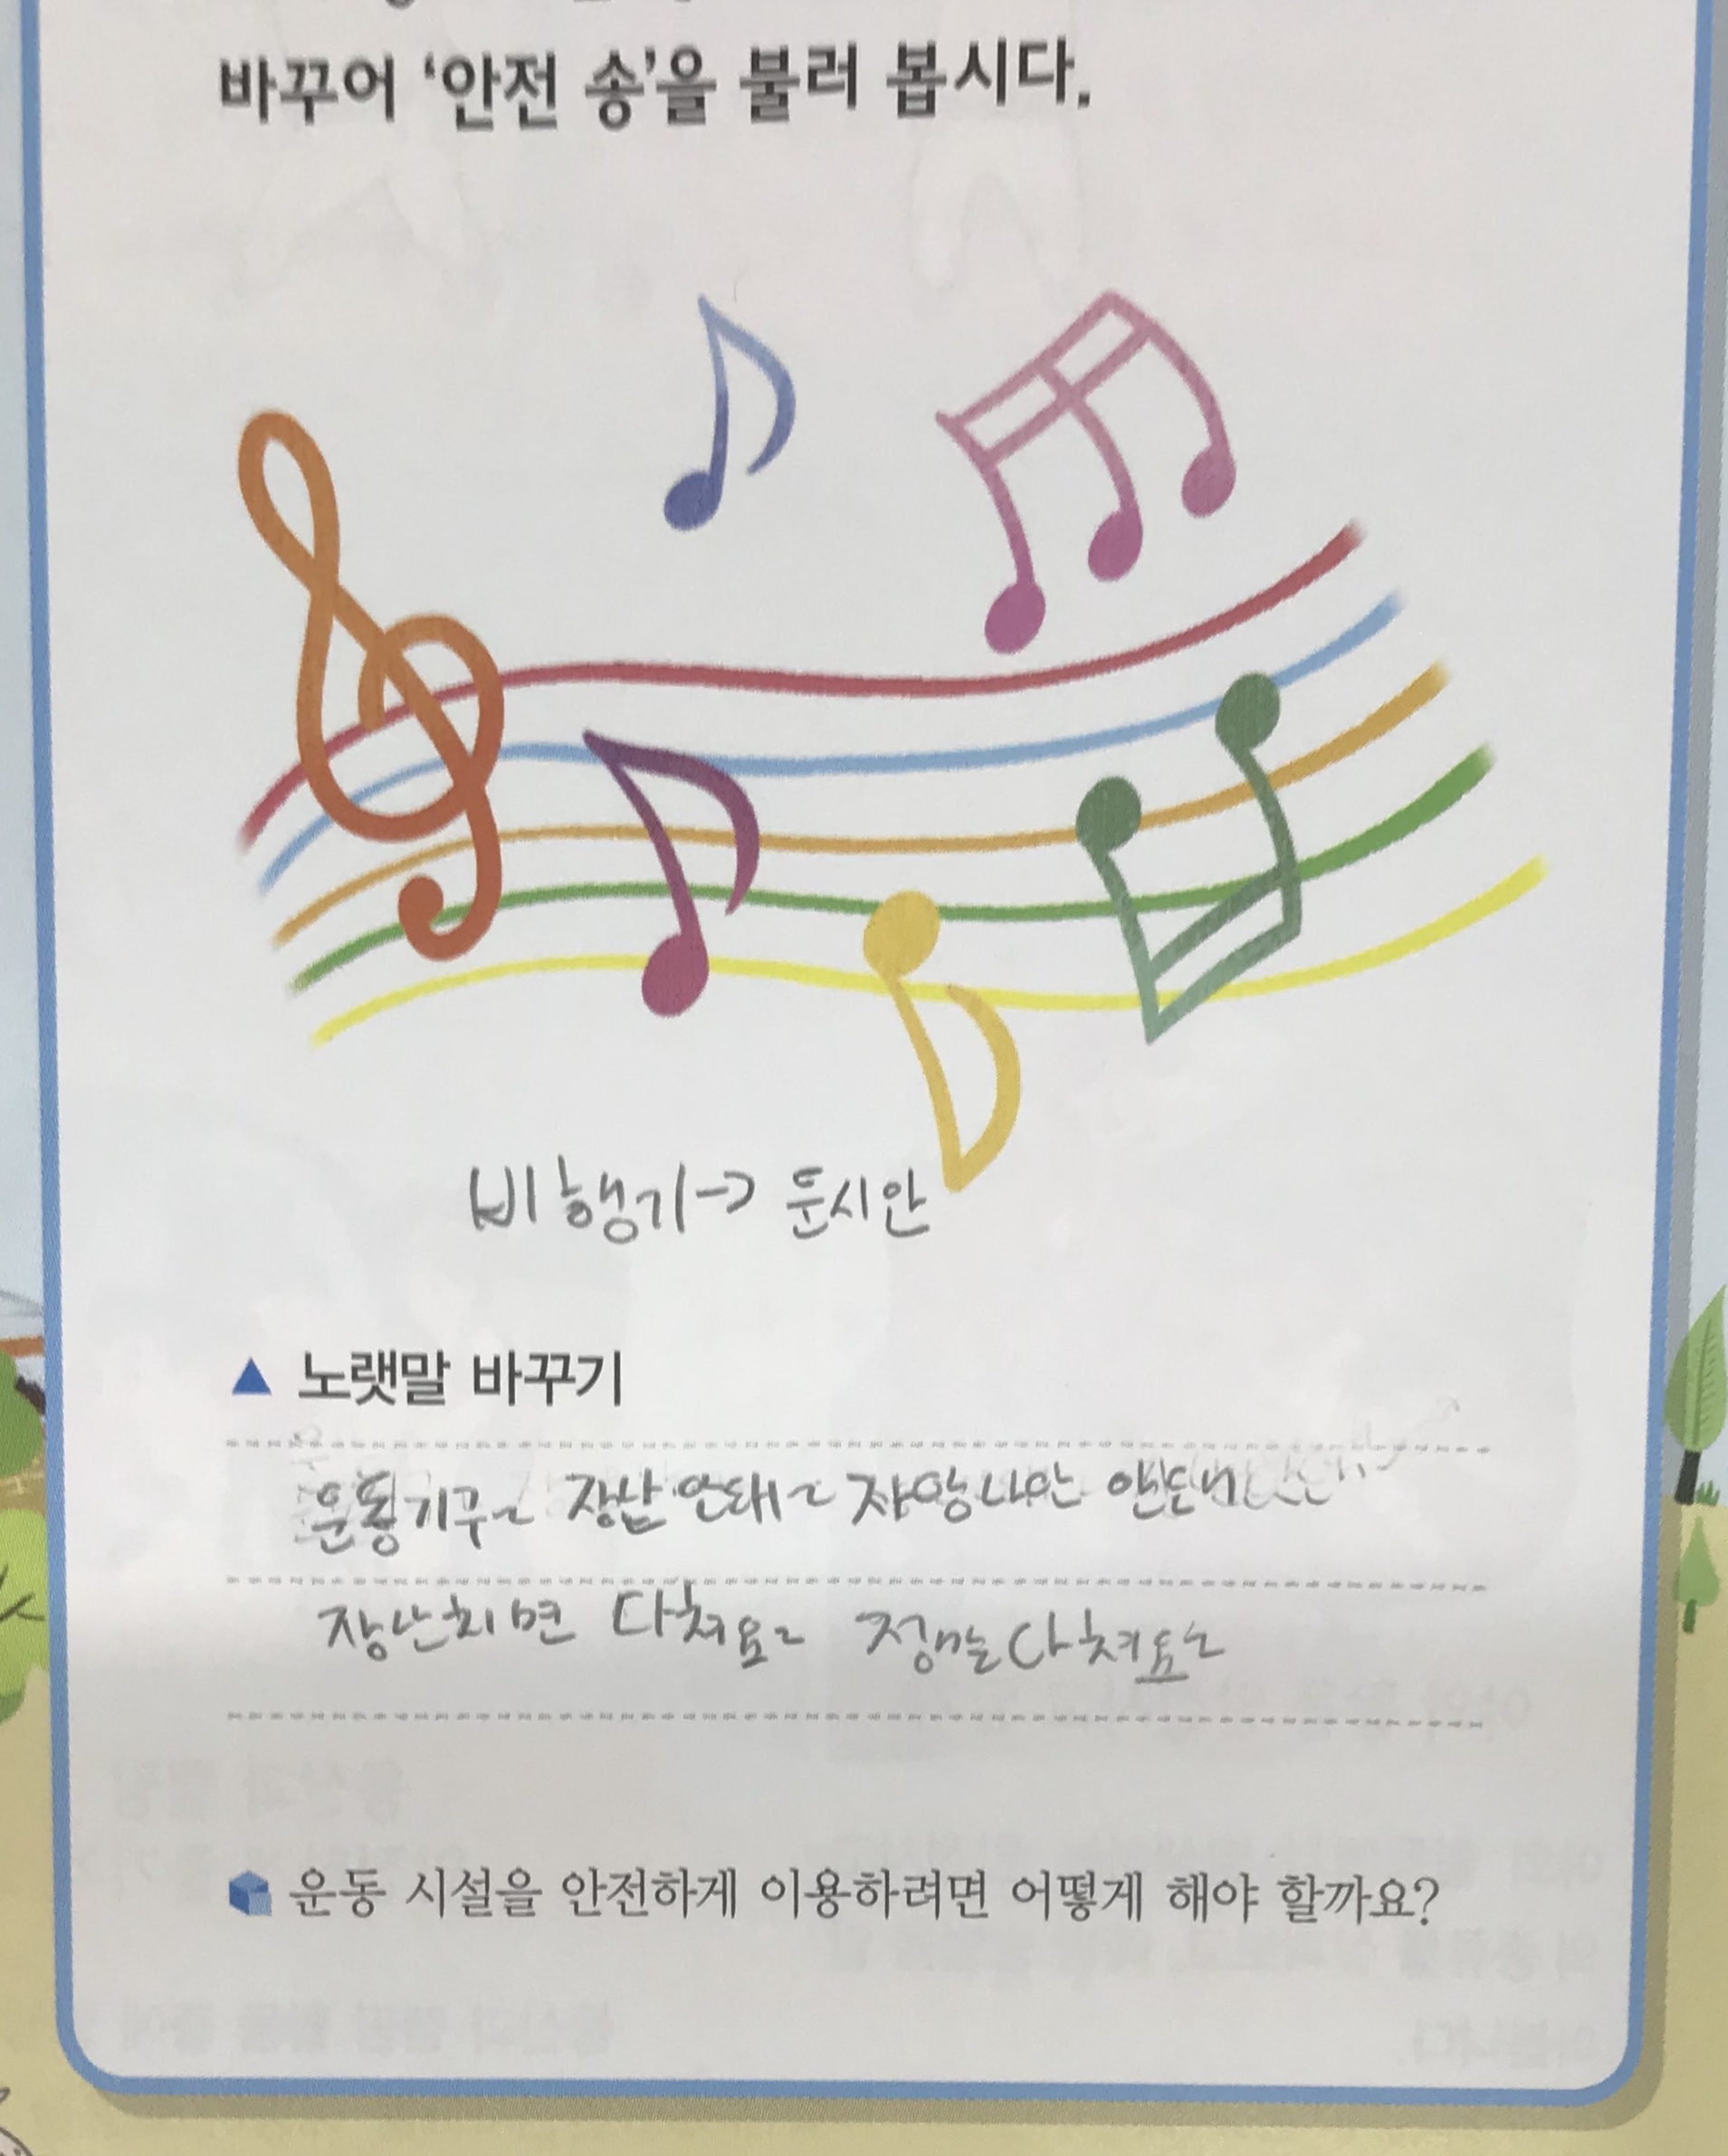 바꾸어 ‘안전 송’을 불러 봅시다.
비행기→ 운시안
▲ 노랫말 바꾸기
운동기구~ 장난 안돼~
장난치면 다쳐요~ 정말다쳐요~
운동 시설을 안전하게 이용하려면 어떻게 해야 할까요?